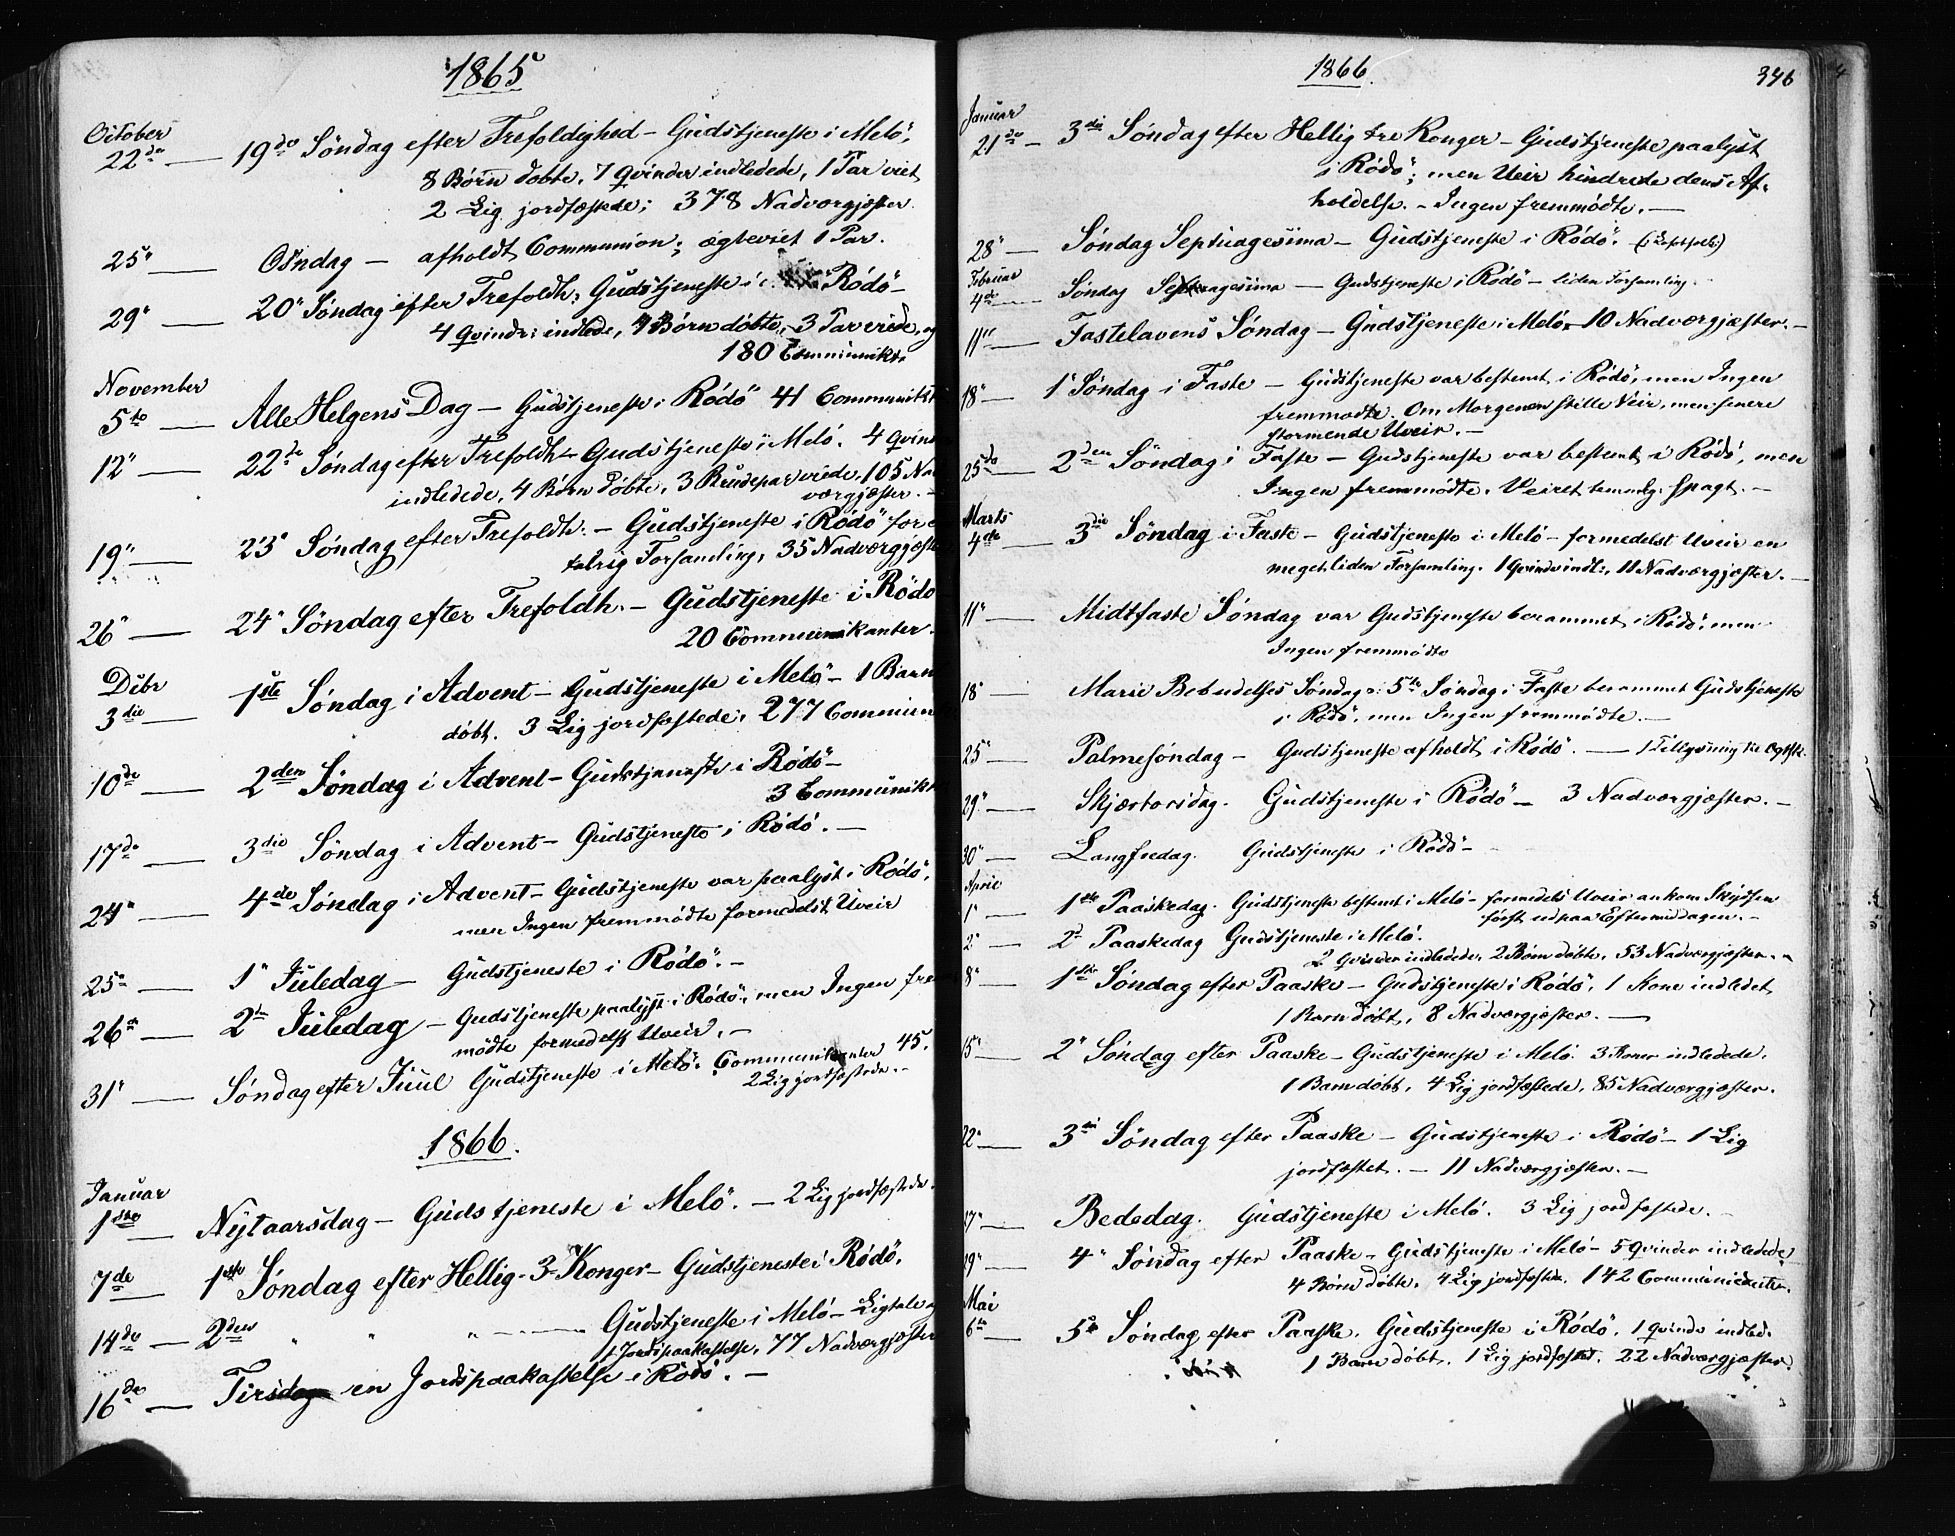 1865
October
22de — 19de Söndag efter Trefoldighed – Gudstjeneste i Melö,
8 Börn döbte, 7 Qvinder indledede, 1 Par viet
2 Lig jordfæstede; 378 Nadværgjæster.
25" — Onsdag — afholdt Communion; ægteviet 1 Par.
29" — 20" Söndag efter Trefoldh: Gudstjeneste i Rödö –
4 Qvinder indlede, 4 Börn döbte, 3 Par viede, og
180 Communikr.
November
5te — Alle Helgens Dag — Gudstjeneste i Rödö 41 Communikt
12" — 22de Söndag efter Trefoldh – Gudstjeneste i Melö. 4 Qvind
indledede, 4 Börn döbte, 3 Brudepar viede, 105 Nad
værgjæster. –
19" — 23" Söndag efter Trefoldh. – Gudstjeneste i Rödö for en
talrig Forsamling, 35 Nadværgjæste
26" — 24" Söndag efter Trefoldh. – Gudstjeneste i Rödö
20 Communikanter.
Dcbr
3die — 1ste Söndag i Advent – Gudstjeneste i Melö – 1 Barn
döbt. 3 Lig jordfæstede. 277 Commun
10de — 2den Söndag i Advent – Gudstjeneste i Rödö –
3 Communikt
17de — 3die Söndag i Advent – Gudstjeneste i Rödö. —
24" — 4de Söndag i Advent – Gudstjeneste var paalyst i Rödö,
men Ingen fremmödte formedelst Uveir
25" — 1" Juledag – Gudstjeneste i Rödö. –
26de — 2de Juledag – Gudstjeneste paalyst i Rödö, men Ingen frem
mödte formedelst Uveir. –
31" — Söndag efter Juul Gudstjeneste i Melö. Communikanter 45.
2 Lig jordfæstede. –
1866.
Januar
1ste — Nytaarsdag – Gudstjeneste i Melö. – 2 Lig jordfæstede.
7de — 1ste Söndag efter Hellig-3-Konger – Gudstjeneste i Rödö.
14de — 2den " " " — Gudstjeneste i Melö – Ligtale og
1 Jordspaakastelse, 77 Nadværgjæster
16de — Tirsdag en Jordspaakastelse i Rödö. –
1866.
376
Januar
21de – 3die Söndag efter Hellig tre Konger – Gudstjeneste paalyst
i Rödö; men Uveir hindrede dens Af-
holdelse. – Ingen fremmödte. —
28" — Söndag Septuagesima – Gudstjeneste i Rödö.
Februar
4de — Söndag Sexagesima — Gudstjeneste i Rödö – liden Forsamling.
11" — Fastelavens Söndag – Gudstjeneste i Melö – 10 Nadværgjæster. –
18" — 1" Söndag i Faste – Gudstjeneste var bestemt i Rödö, men Ingen
fremmödte. Om Morgenen stille Veir, men senere
stormende Uveir. —
25de — 2den Söndag i Faste – Gudstjeneste var bestemt i Rödö, men
Ingen fremmödte. Veiret temmelg. spagt. –
Marts
4de — 3die Söndag i Faste – Gudstjeneste i Melö – formedelst Uveir en
meget liden Forsamling. 1 Qvinde indl:, 11 Nadværgjæster. –
11" — Midtfaste Söndag var Gudstjeneste berammet i Rödö, men
Ingen fremmödte
18" — Marie Bebudelses Söndag o: 5te Söndag i Faste berammet Gudstjeneste
i Rödö, men Ingen fremmödte. —
25" — Palmesöndag – Gudstjeneste afholdt i Rödö. — 1 Tillysning til Ægtesk.
29" — Skjærtorsdag. Gudstjeneste i Rödö – 3 Nadværgjæster. –
30" — Langfredag. Gudstjeneste i Rödö –
April
1" — 1ste Paaskedag. Gudstjeneste bestemt i Melö – formedelst Uveir ankom Skydsen
först ud paa Eftermiddagen. –
2" — 2d Paaskedag Gudstjeneste i Melö.
2 Qvinder indledede, 2 Börn döbte, 53 Nadværgjæster. –
8" — 1ste Söndag efter Paaske – Gudstjeneste i Rödö, 1 Kone indledet,
1 Barn döbt, 8 Nadværgjæster. —
15" — 2" Söndag efter Paaske – Gudstjeneste i Melö. 3 Koner indledede,
1 Barn döbt, 4 Lig jordfæstede, 85 Nadværgjæster.
22" — 3die Söndag efter Paaske – Gudstjeneste i Rödö – 1 Lig
jordfæstet. – 11 Nadværgjæster. –
27" — Bededag. Gudstjeneste i Melö. 3 Lig jordfæstede. –
29" — 4" Söndag efter Paaske – Gudstjeneste i Melö – 5 Qvinder indledede,
4 Börn döbte, 4 Lig jordfæstede, 142 Communicanter.
Mai
6te — 5te Söndag efter Paaske. Gudstjeneste i Rödö. 1 Qvinde indled.
1 Barn döbt, 1 Lig jordfæstet, 22 Nadværgjæster.